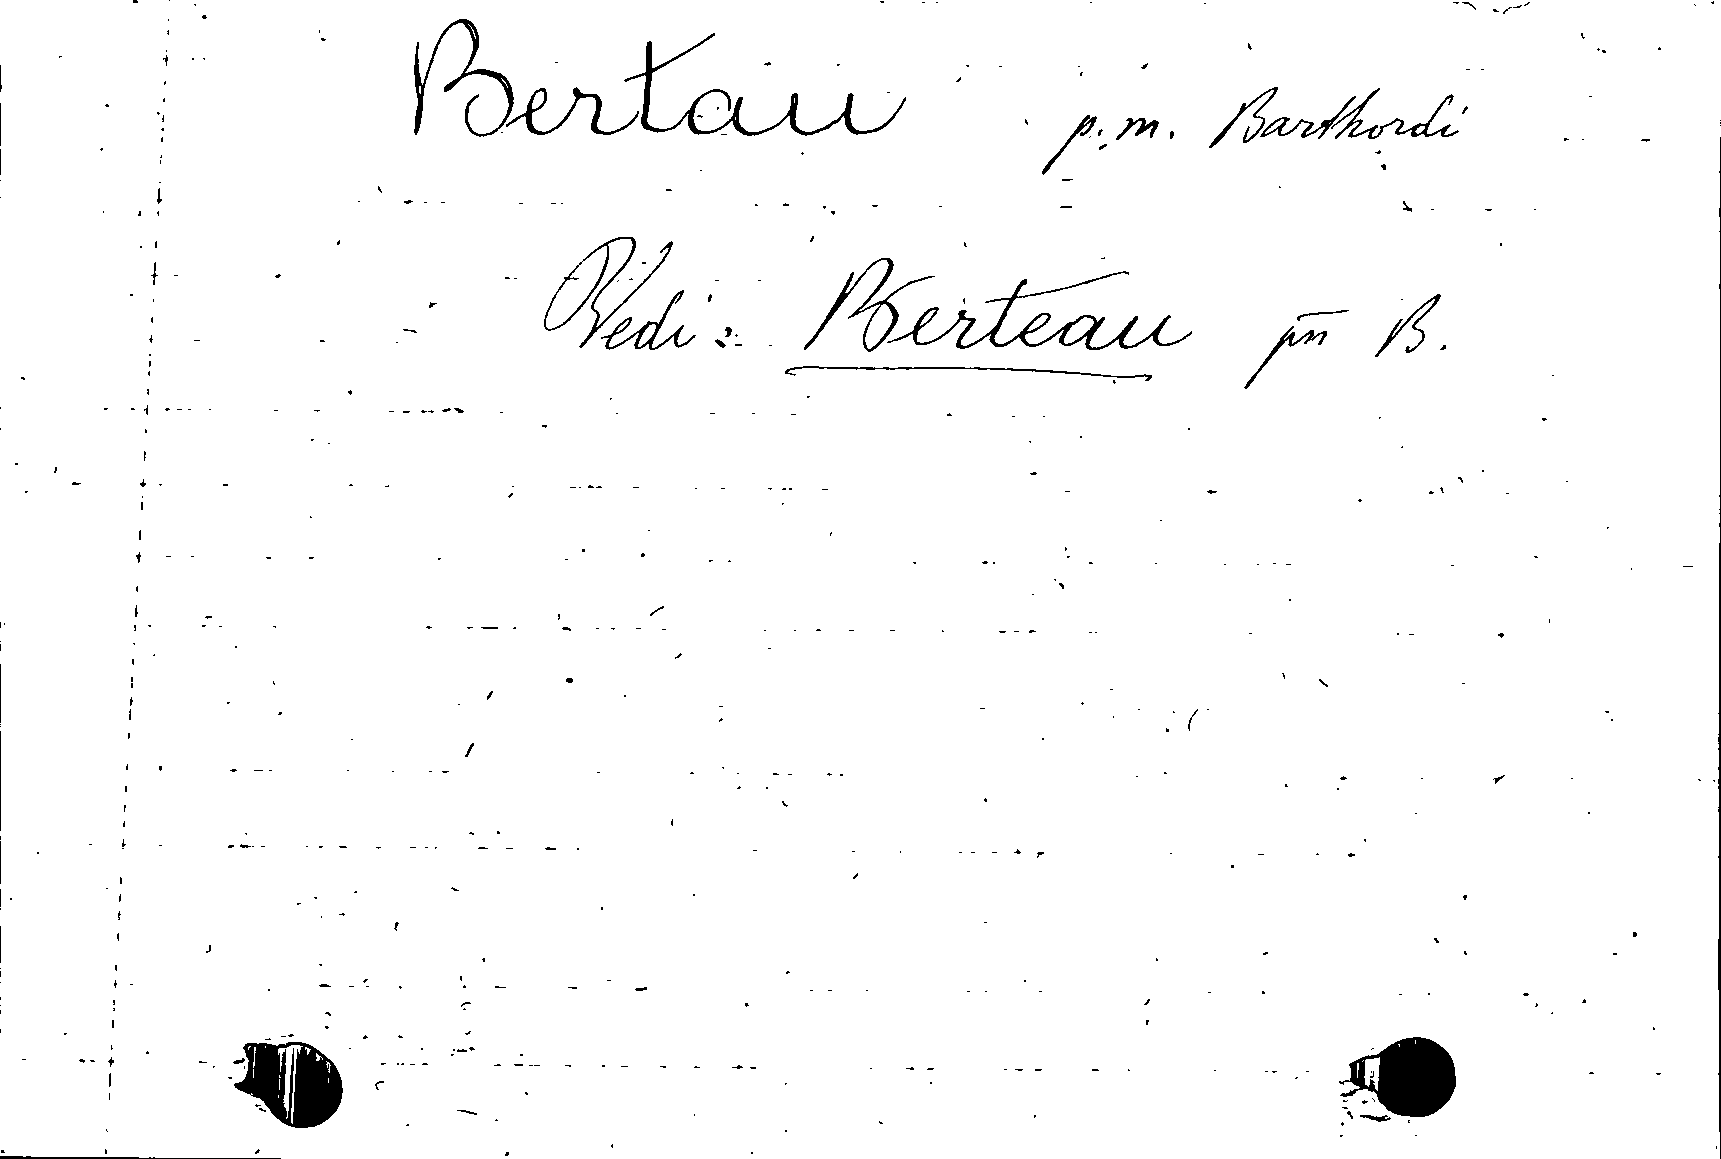 Bertau p.m. Barthordi
Vedi: Berteau pm B.